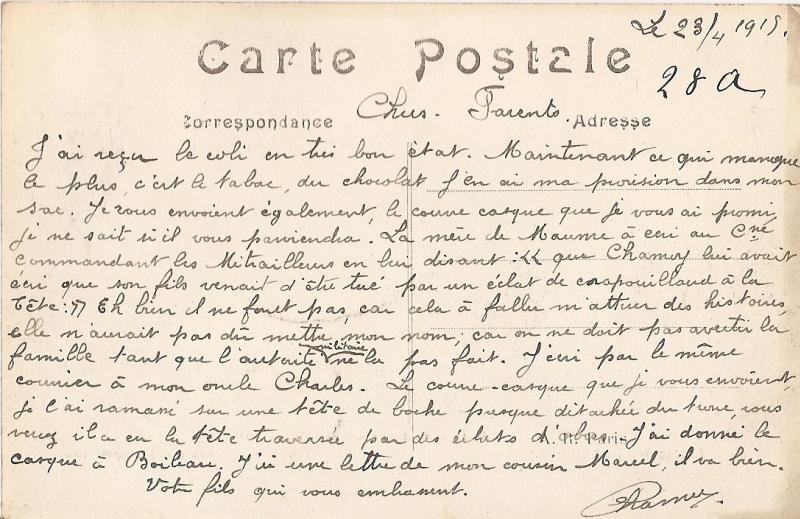 Le 23/4 1915.
Carte Postale
28 A
Chers Parents.
Correspondance Adresse
J'ai reçu le coli en très bon état. Maintenant ce qui manque
le plus, c'est le tabac, du chocolat j'en ai ma provision dans mon
sac. Je vous envoient également, le couvre casque que je vous ai promi,
je ne sait si il vous parviendra. La mère de Maume à écri au Cne
commandant les Mitrailleurs en lui disant : << que Chamoy lui avait
écri que son fils venait d'être tué par un éclat de crapouillaud à la
tête : >> Eh bien il ne foret pas, car cela à fallu m'attirer des histoires,
elle n'aurait pas dû mettre mon nom, car on ne doit pas avertir la
famille tant que l'autorité militaire ne la pas fait. J'écri par le même
courrier à mon oncle Charles. Le couvre-casque que je vous envoient,
je l'ai ramassé sur une tête de boche presque détachée du tronc, vous
verrez il a eu la tête traversée par des éclats d'obus. J'ai donné le
casque à Boileau. J'ai une lettre de mon cousin Marcel, il va bien.
A. P. Paris
Votre fils qui vous embrassent.